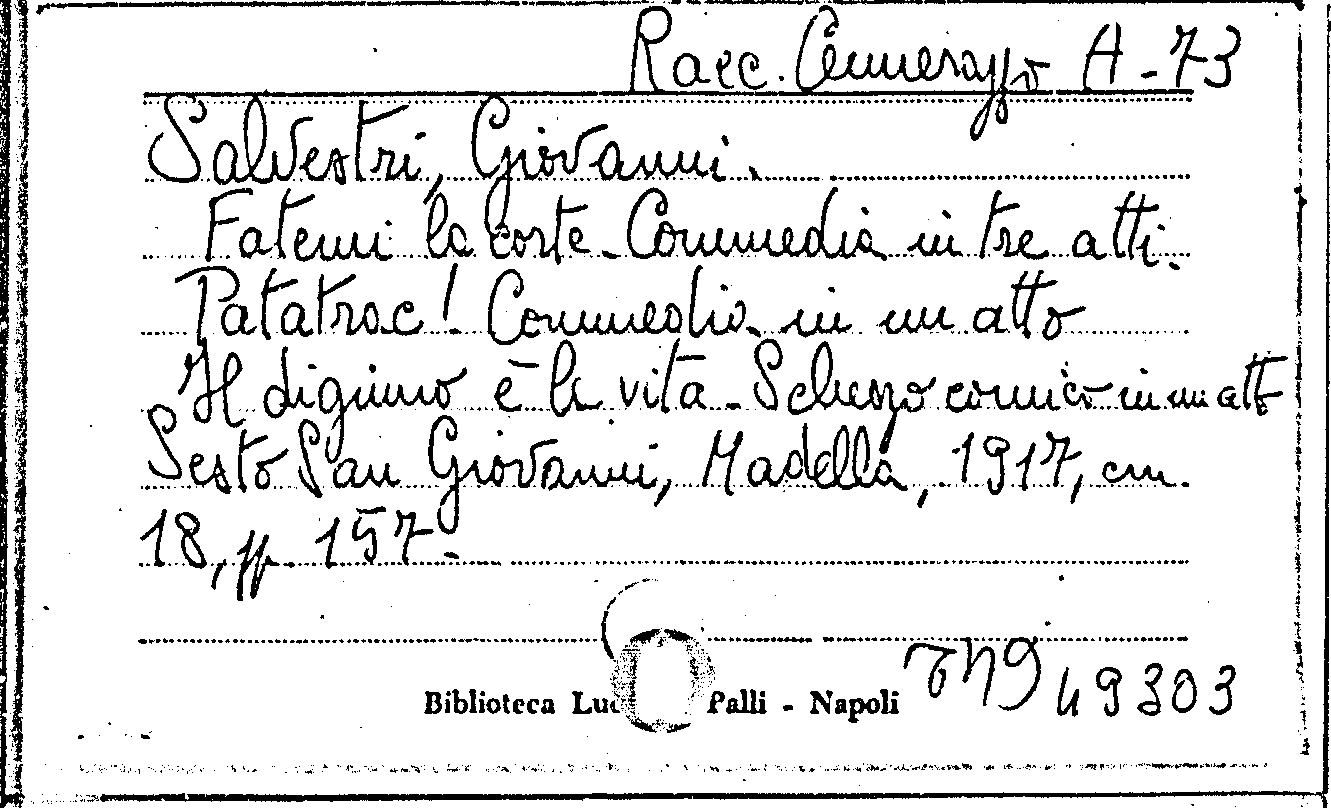 Racc. Cennerazzo A - 73
Salvestri, Giovanni.
Fatemi la corte - Commedia in tre atti.
Patatrac! Commedia in un atto
Il digiuno è la vita - Scherzo comico in un atto
Sesto San Giovanni, Madella, 1917, cm.
18, pp. 157.
Biblioteca Palli - Napoli
49303